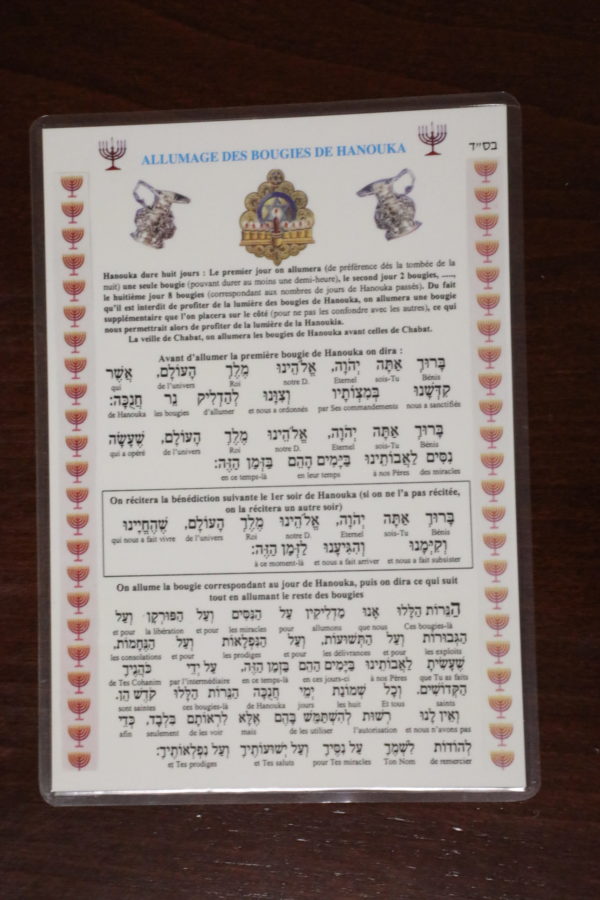 בס״ד
ALLUMAGE DES BOUGIES DE HANOUKA
Hanouka dure huit jours : Le premier jour on allumera (de préférence dès la tombée de la
nuit) une seule bougie (pouvant durer au moins une demi-heure), le second jour 2 bougies, .....,
le huitième jour 8 bougies (correspondant aux nombres de jours de Hanouka passés). Du fait
qu'il est interdit de profiter de la lumière des bougies de Hanouka, on allumera une bougie
supplémentaire que l'on placera sur le côté (pour ne pas les confondre avec les autres), ce qui
nous permettrait alors de profiter de la lumière de la Hanoukia.
La veille de Chabat, on allumera les bougies de Hanouka avant celles de Chabat.
Avant d'allumer la première bougie de Hanouka on dira :
בָּרוּךְ אַתָּה יְהֹוָה, אֱלֹהֵינוּ מֶלֶךְ הָעוֹלָם, אֲשֶׁר
Bénis sois-Tu Eternel notre D. Roi de l'univers qui
קִדְּשָׁנוּ בְּמִצְוֹתָיו וְצִוָּנוּ לְהַדְלִיק נֵר חֲנֻכָּה:
nous a sanctifiés par Ses commandements et nous a ordonnés d'allumer les bougies de Hanouka
בָּרוּךְ אַתָּה יְהֹוָה, אֱלֹהֵינוּ מֶלֶךְ הָעוֹלָם, שֶׁעָשָׂה
Bénis sois-Tu Eternel notre D. Roi de l'univers qui a opéré
נִסִּים לַאֲבוֹתֵינוּ בַּיָּמִים הָהֵם בַּזְּמַן הַזֶּה:
des miracles à nos Pères en leur temps en ce temps-là
On récitera la bénédiction suivante le 1er soir de Hanouka (si on ne l'a pas récitée,
on la récitera un autre soir)
בָּרוּךְ אַתָּה יְהֹוָה, אֱלֹהֵינוּ מֶלֶךְ הָעוֹלָם, שֶׁהֶחֱיָינוּ
Bénis sois-Tu Eternel notre D. Roi de l'univers qui nous a fait vivre
וְקִיְּמָנוּ וְהִגִּיעָנוּ לַזְּמַן הַזֶּה:
et nous a fait subsister et nous a fait arriver à ce moment-là
On allume la bougie correspondant au jour de Hanouka, puis on dira ce qui suit
tout en allumant le reste des bougies
הַנֵּרוֹת הַלָּלוּ אָנוּ מַדְלִיקִין עַל הַנִּסִּים וְעַל הַפּוּרְקָן וְעַל
Ces bougies-là que nous allumons pour les miracles et pour la libération et pour
הַגְּבוּרוֹת וְעַל הַתְּשׁוּעוֹת, וְעַל הַנִּפְלָאוֹת וְעַל הַנֶּחָמוֹת,
les exploits et pour les délivrances et pour les prodiges et pour les consolations
שֶׁעָשִׂיתָ לַאֲבוֹתֵינוּ בַּיָּמִים הָהֵם בַּזְּמַן הַזֶּה, עַל יְדֵי כֹּהֲנֶיךָ
que Tu as faits à nos Pères en ces jours-ci en ce temps-là par l'intermédiaire de Tes Cohanim
הַקְּדוֹשִׁים. וְכָל שְׁמוֹנַת יְמֵי חֲנֻכָּה הַנֵּרוֹת הַלָּלוּ קֹדֶשׁ הֵן.
saints Et tous les huit jours de Hanouka ces bougies-là sont saintes
וְאֵין לָנוּ רְשׁוּת לְהִשְׁתַּמֵּשׁ בָּהֶם אֶלָּא לִרְאוֹתָם בִּלְבָד, כְּדֵי
et nous n'avons pas l'autorisation de les utiliser mais de les voir seulement afin
לְהוֹדוֹת לִשְׁמֶךָ עַל נִסֶּיךָ וְעַל יְשׁוּעוֹתֶיךָ וְעַל נִפְלְאוֹתֶיךָ:
de remercier Ton Nom pour Tes miracles et Tes saluts et Tes prodiges